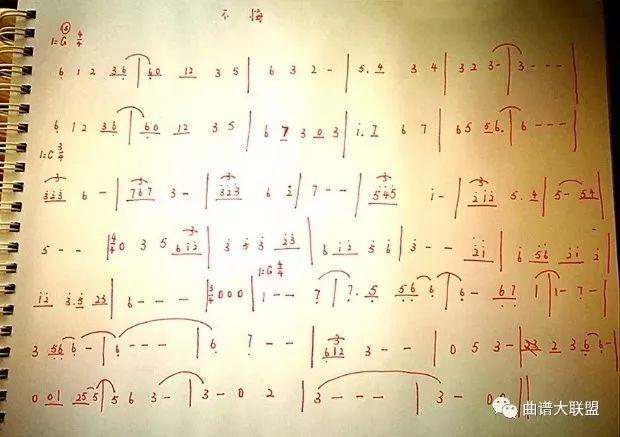 不悔
1=G 4/4
6 1 2 3 6 | 6 0 1 2 3 5 | 6 3 2 - | 5. 4 3 4 | 3 2 3 - | 3 - - - |
6 1 2 3 6 | 6 0 1 2 3 5 | 6 7 3 0 3 | i. 7 6 7 | 6 5 5 6. | 6 - - - |
1=C 3/4
3 2 3 6 - | 7 6 7 3 - | 3 2 3 6 2 | 7 - - | 5 4 5 i - | 2 i 2 5. 4 | 5 - 5 4 |
5 - - | 4/4 0 3 5 6 i 2 | 3 5 3 2 3 | 6 i 2 5 6 | 3 - - 2 i | 6 5 6 2 i 2 |
1=G 4/4
i 2 3. 5 2 3 | 6 - - - | 3/4 0 0 0 | 1 - - 7 | 7. 5 5 6 6 | 6 - 6 7 1 | 1 - 7 - |
3 5 6 6 - | 6 - - - | 6. 7 - - | 6 1 2 3 - - | 0 5 3 - | 2 3 6 6 - |
0 0 1 2 5 5 | 5 6 3 - | 3 - 0 2 | 3 - - - | 3 - 0 0 ||
曲谱大联盟